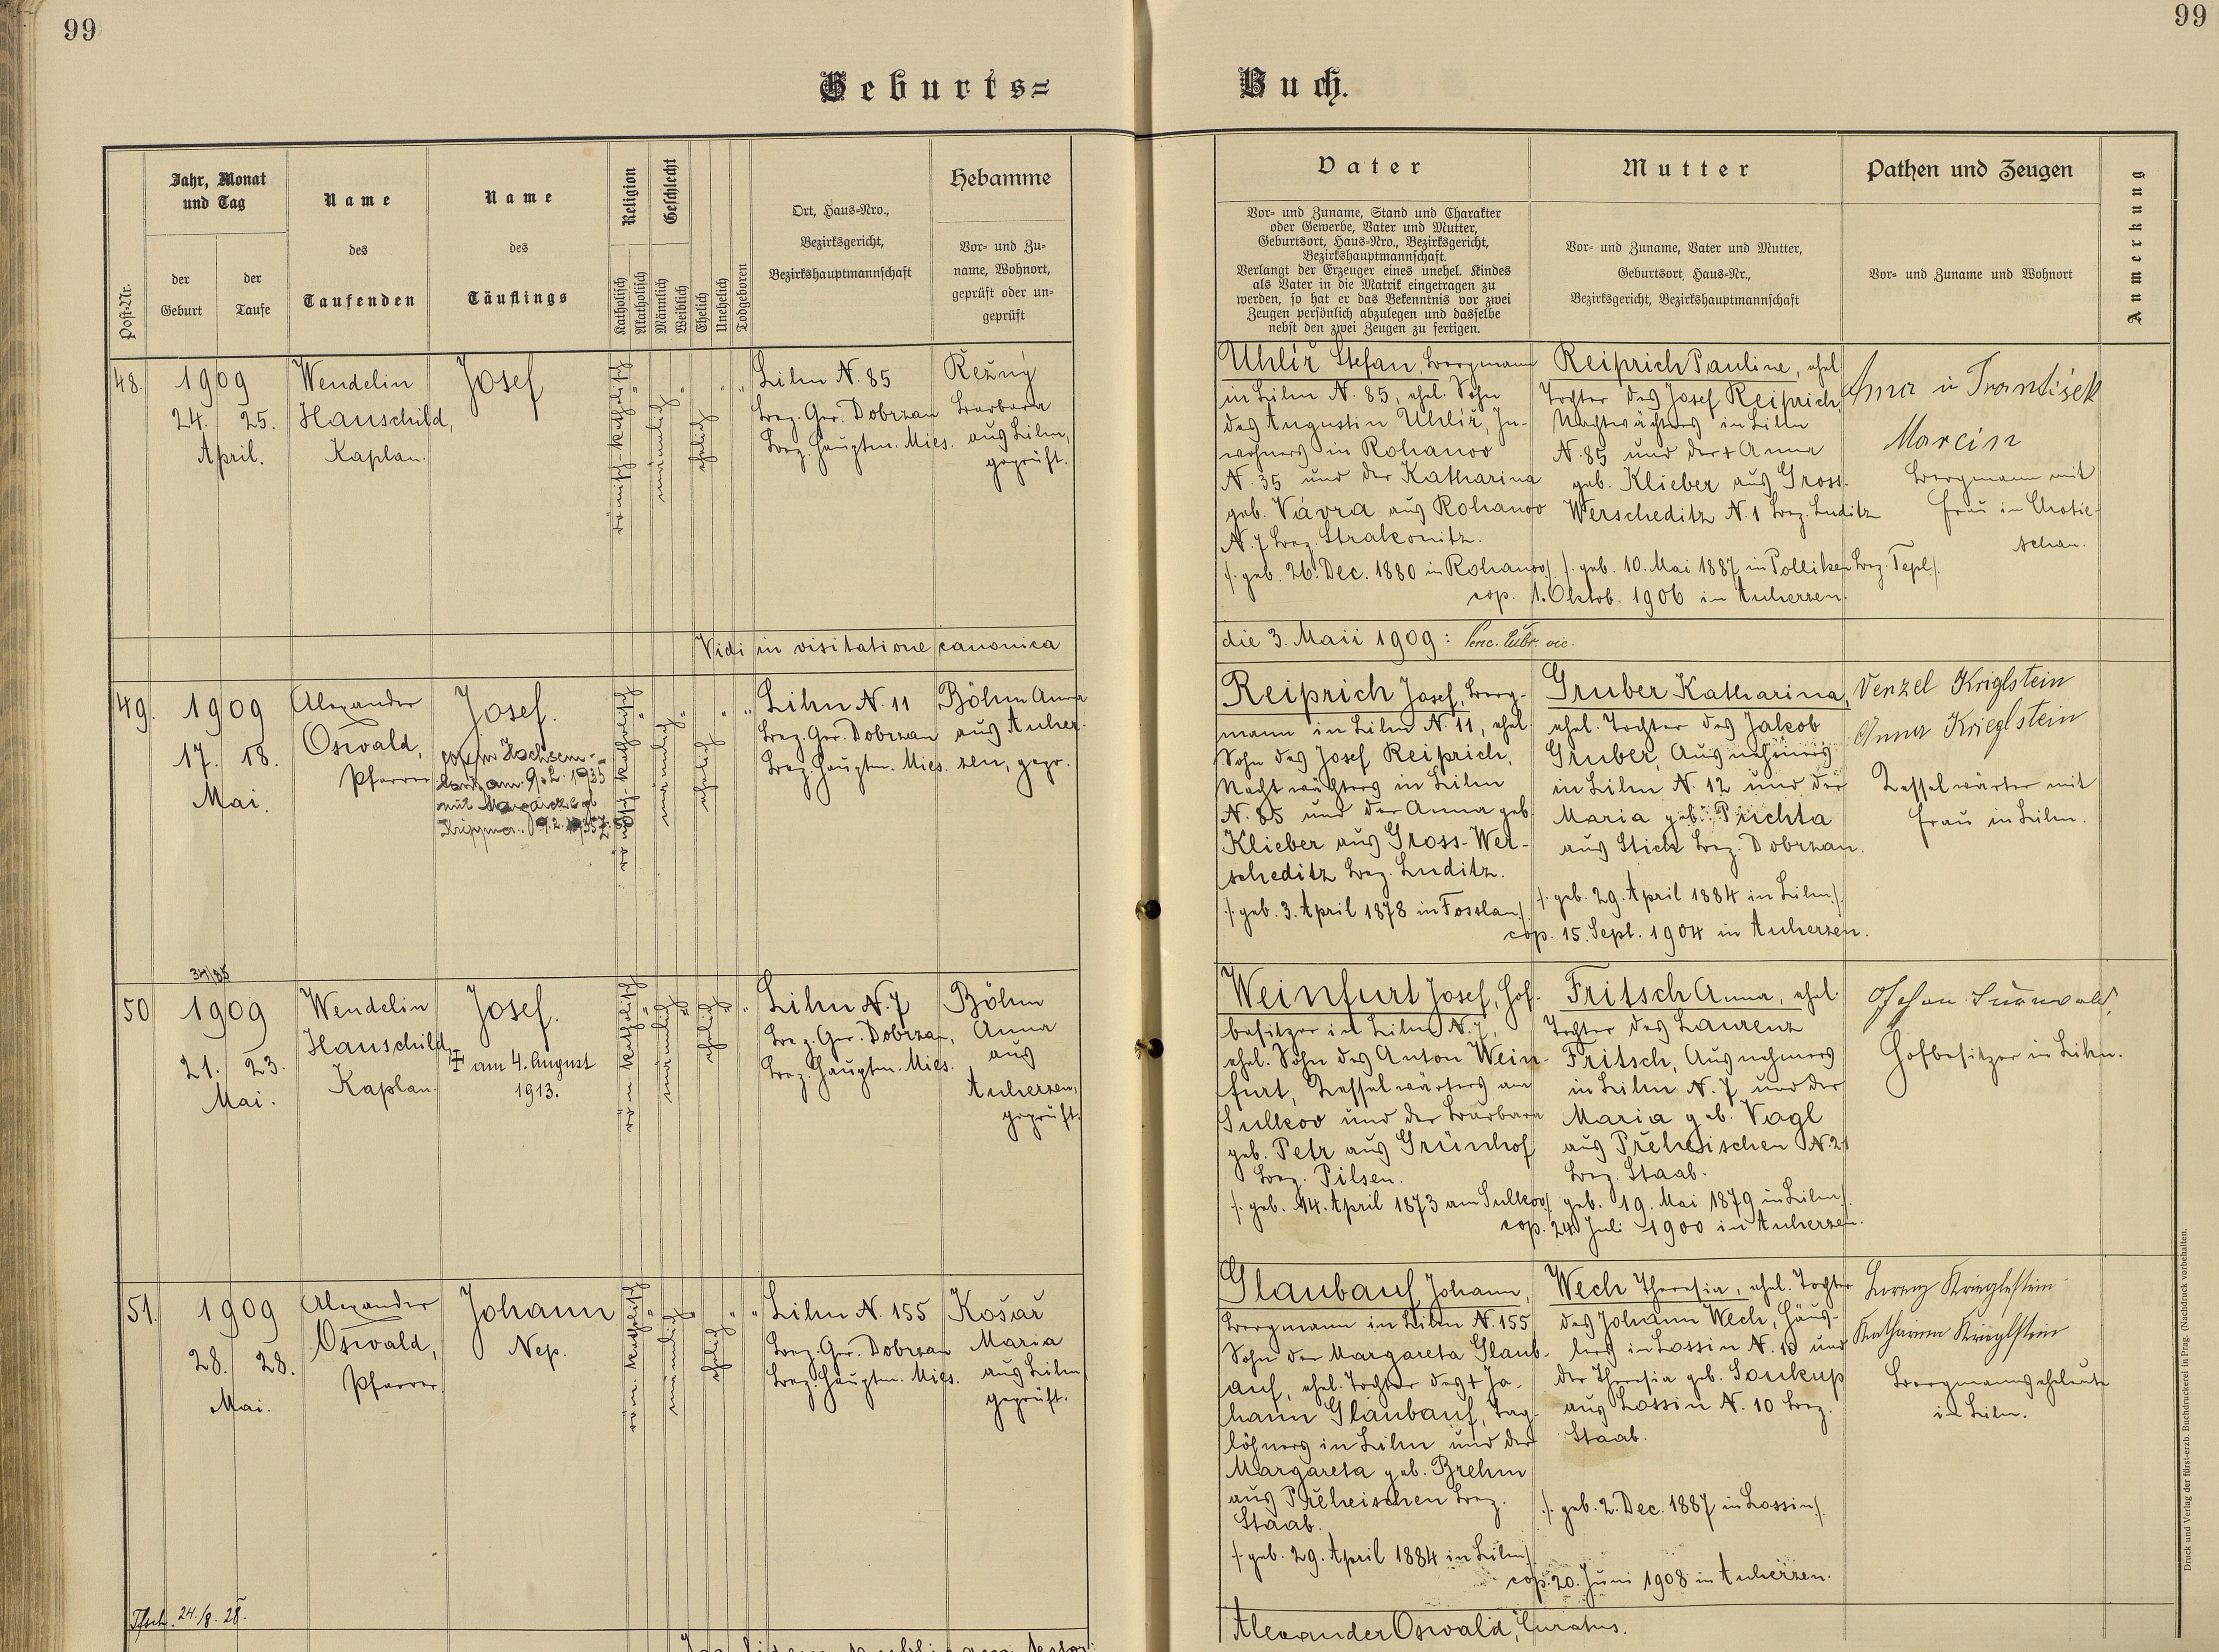 99
99
Geburts=
Buch.
Post-Nr.
Jahr, Monat
und Tag
der
Geburt
der
Taufe
Name
des
Taufenden
Name
des
Täuflings
Religion
Katholisch
Akatholisch
Geschlecht
Männlich
Weiblich
Ehelich
Unehelich
Todgeboren
Ort, Haus=Nro.,
Bezirksgericht,
Bezirkshauptmannschaft
Hebamme
Vor= und Zu=
name, Wohnort,
geprüft oder un=
geprüft
Vater
Vor= und Zuname, Stand und Charakter
oder Gewerbe, Vater und Mutter,
Geburtsort, Haus=Nro., Bezirksgericht,
Bezirkshauptmannschaft.
Verlangt der Erzeuger eines unehel. Kindes
als Vater in die Matrik eingetragen zu
werden, so hat er das Bekenntnis vor zwei
Zeugen persönlich abzulegen und dasselbe
nebst den zwei Zeugen zu fertigen.
Mutter
Vor= und Zuname, Vater und Mutter,
Geburtsort, Haus=Nr.,
Bezirksgericht, Bezirkshauptmannschaft
Pathen und Zeugen
Vor= und Zuname und Wohnort
Anmerkung
48.
1909
24. 25.
April.
Wendelin
Hauschild,
Kaplan.
Josef
römisch-katholisch
männlich
ehelich
Lihn N. 85
Bez. Ger. Dobrzan
Bez. Hauptm. Mies.
Režný
Barbara
aus Lihn,
geprüft.
Uhlíř Stefan, Bergmann
in Lihn N. 85, ehel. Sohn
des Augustin Uhlíř, In-
wohners in Rohanov
N. 35 und der Katharina
geb. Vávra aus Rohanov
N. 7 Bez. Strakonitz.
/. geb. 26. Dec. 1880 in Rohanov ./
Reiprich Pauline, ehel.
Tochter des Josef Reiprich,
Nachtwächters in Lihn
N. 85 und der + Anna
geb. Klieber aus Gross-
Werscheditz N. 1 Bez. Luditz
/. geb. 10. Mai 1887 in Polliken Bez. Tepl ./
cop. 1. Oktob. 1906 in Auherzen.
Anna u František
Marcin
Bergmann mit
Frau in Chotie-
schau.
Vidi in visitatione canonica
die 3. Maii 1909:
49.
1909
17. 18.
Mai.
Alexander
Oswald,
Pfarrer
Josef.
am 9.2. 1935
mit Margarete geb.
römisch-katholisch
männlich
ehelich
Lihn N. 11
Bez. Ger. Dobrzan
Bez. Hauptm. Mies.
Böhm Anna
aus Auher-
zen, gepr.
Reiprich Josef, Berg-
mann in Lihn N. 11, ehel.
Sohn des Josef Reiprich,
Nachtwächters in Lihn
N. 85 und der Anna geb.
Klieber aus Gross-Wer-
scheditz Bez. Luditz.
/. geb. 3. April 1878 in Fosslau ./
Gruber Katharina,
ehel. Tochter des Jakob
Gruber, Ausnehmers
in Lihn N. 12 und der
Maria geb. Prichta
aus Stich Bez. Dobrzan.
/. geb. 29. April 1884 in Lihn ./
cop. 15. Sept. 1904 in Auherzen.
Venzel Kriglstein
Anna Krieglstein
Kesselwärter mit
Frau in Lihn.
50
1909
21. 23.
Mai.
Wendelin
Hauschild,
Kaplan.
Josef.
am 4. August
1913.
röm. katholisch
männlich
ehelich
Lihn N. 7
Bez. Ger. Dobrzan,
Bez. Hauptm. Mies.
Böhm
Anna
aus
Auherzen,
geprüft.
Weinfurt Josef, Hof-
besitzer in Lihn N. 7,
ehel. Sohn des Anton Wein-
furt, Kesselwärters am
Sulkov und der Barbara
geb. Petr aus Grünhof
Bez. Pilsen.
/. geb. 14. April 1873 am Sulkov ./
Fritsch Anna, ehel.
Tochter des Laurenz
Fritsch, Ausnehmers
in Lihn N. 7 und der
Maria geb. Vagl
aus Přeheischen N. 21
Bez. Staab.
geb. 19. Mai 1879 in Lihn ./
cop. 24. Juli 1900 in Auherzen.
Hofbesitzer in Lihn.
51.
1909
28. 28.
Mai.
Alexander
Oswald,
Pfarrer
Johann
Nep.
röm. katholisch
männlich
ehelich
Lihn N. 155
Bez. Ger. Dobrzan
Bez. Hauptm. Mies.
Košař
Maria
aus Lihn
geprüft.
Glaubauf Johann,
Bergmann in Lihn N. 155
Sohn der Margareta Glaub-
auf, ehel. Tochter des + Jo-
hann Glaubauf, Tag-
löhners in Lihn und der
Margareta geb. Brehm
aus Přeheischen Bez.
Staab.
/. geb. 29. April 1884 in Lihn ./
Wech Theresia, ehel. Tochter
des Johann Wech, Häus-
lers in Lossin N. 10 und
der Theresia geb. Soukup
aus Lossin N. 10 Bez.
Staab.
/. geb. 2. Dec. 1887 in Lossin ./
cop. 20. Juni 1908 in Auherzen.
Lorenz Krieglstein
Katharina Krieglstein
Bergmannseheleute
in Lihn.
24./8. 28.
Alexander Oswald, Curatus.
Druck und Verlag der fürst-erzb. Buchdruckerei in Prag. (Nachdruck vorbehalten.